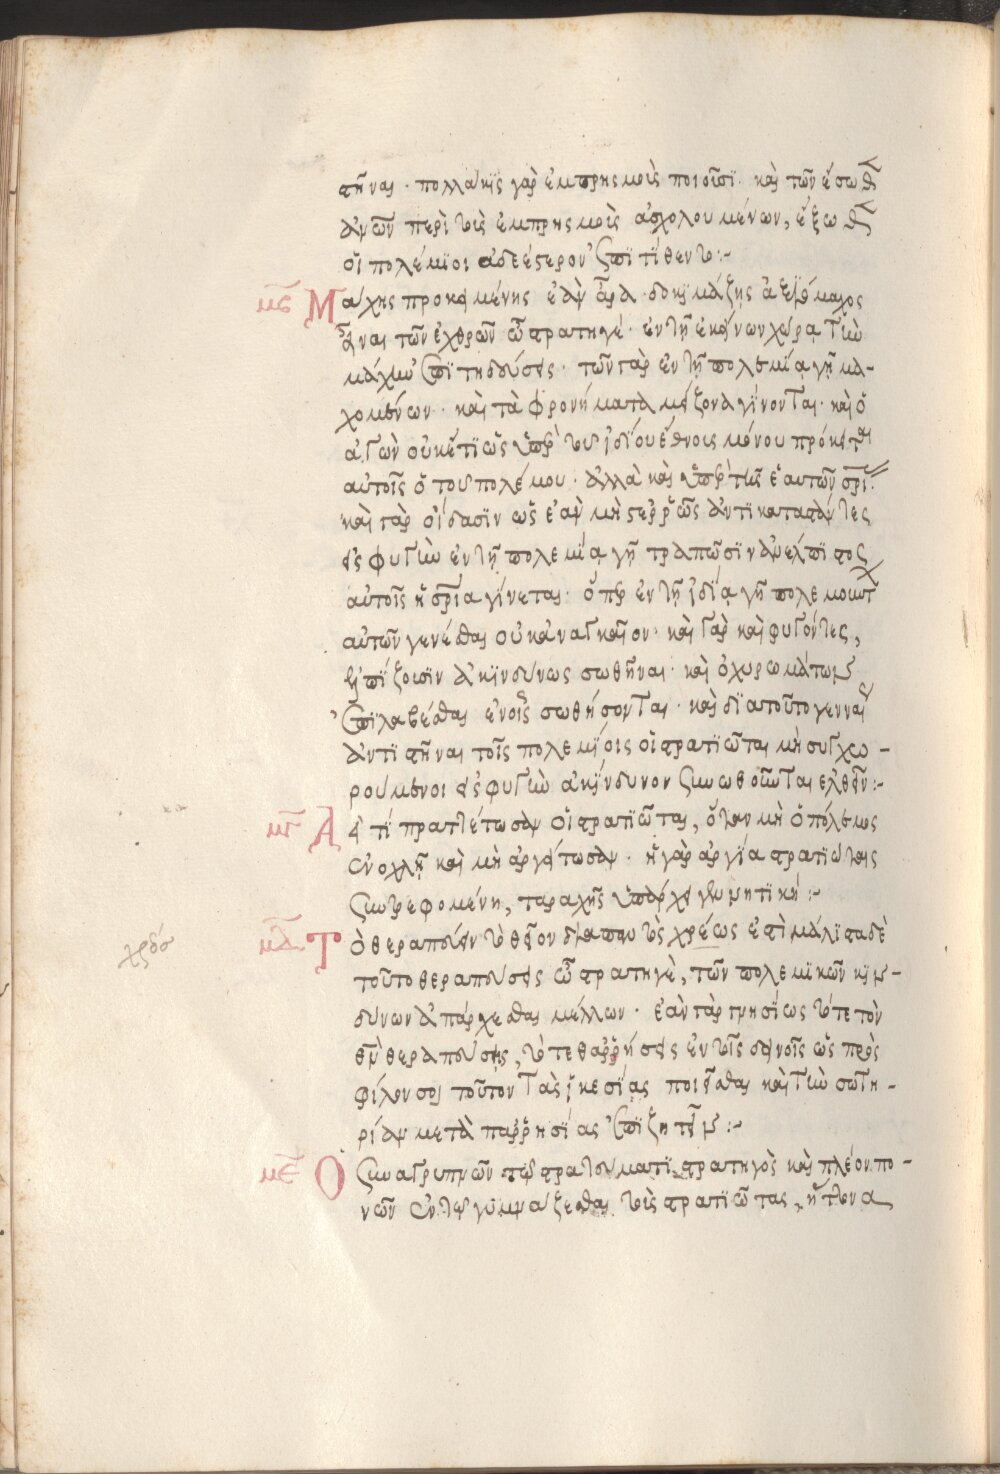 στῆναι · πολλάκις γὰρ ἐμπρησμοὺς ποιοῦσι · καὶ τῶν ἔσωθ
ἀνῶν περὶ τοὺς ἐμπρησμοὺς ἀσχολουμένων, ἔξωθ
οἱ πολέμιοι ἀδεέστερον ἐπιτίθεντο :-
μβ Μάχης προκειμένης ἐὰν ἆρα δοκιμάζης ἀξιόμαχος
εἶναι τῶν ἐχθρῶν ὦ στρατηγέ · ἐν τῇ ἐκείνων χώρᾳ τὴν
μάχην ἐπιτηδεύσεις · τῶν γὰρ ἐν τῇ πολεμίᾳ γῇ μα-
χομένων · καὶ τὰ φρονήματα μείζονα γίνονται · καὶ ὁ
ἀγὼν οὐκέτι ὡς ὑπὲρ τοῦ ἰδίου ἔθνους μόνου πρόκειται
αὐτοῖς ὁ τοῦ πολέμου · ἀλλὰ καὶ ὑπὲρ τῆς ἑαυτῶν σρι
καὶ γὰρ οἴδασιν ὡς ἐὰν μὴ στερρῶς ἀντικαταστάντες
εἰς φυγὴν ἐν τῇ πολεμίᾳ γῇ τραπῶσιν ἀνέλπιστος
αὐτοῖς ἡ σρία γίνεται · ὅπερ ἐν τῇ ἰδίᾳ γῇ πολεμουντ
αὐτῶν γενέσθαι οὐκ ἀναγκαῖον · καὶ γὰρ καὶ φυγόντες,
ἐλπίζουσιν ἀκινδύνως σωθῆναι · καὶ ὀχυρωμάτων
ἐπιλαβέσθαι ἐν οἷς σωθήσονται · καὶ διατοῦτο γενναί
ἀντιστῆναι τοῖς πολεμίοις οἱ στρατιῶται μὴ συγχω-
ρούμενοι εἰς φυγὴν ἀκίνδυνον συνωθοῦνται ἐλθεῖν :-
μγ Ἀεί τι πραττέτωσαν οἱ στρατιῶται, ὅταν μὴ ὁ πόλεμος
ἐνοχλῇ καὶ μὴ ἀργείτωσαν · ἡ γὰρ ἀργία στρατιώταις
συντρεφομένη, ταραχῆς ὑπάρχει γεννητική :-
μδ Τὸ θεραπεύειν τὸ θεῖον διαπαντὸς χρέως ἐστὶ μάλιστα δὲ
τοῦτο θεραπεύσεις ὦ στρατηγὲ, τῶν πολεμικῶν κιν-
δύνων ἀπάρχεσθαι μέλλων · ἐὰν γὰρ γνησίως τότε τὸν
θν θεραπεύσῃς, τότε θαρρήσεις ἐν τοῖς δεινοῖς ὡς πρὸς
φίλον σοι τοῦτον τὰς ἱκεσίας ποιεῖσθαι καὶ τὴν σωτη-
ρίαν μετὰ παρρησίας ἐπιζητεῖν :-
με Ὁ συναγρυπνῶν τῷ στρατεύματι στρατηγὸς καὶ πλέον πο-
νῶν ἐν τῷ γυμνάζεσθαι τοὺς στρατιώτας,